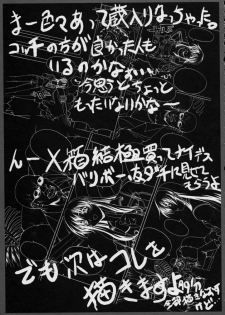 まー色々あって蔵入りなっちゃった。
コッチの方が良かった人も
いるのかなぁ…
今思うとちょっと
もったいないかなー
んーX箱結極買ってナイデス
バリボー直ダチに見せて
もらうよ
でも次はコレを
描きますよ
けど。